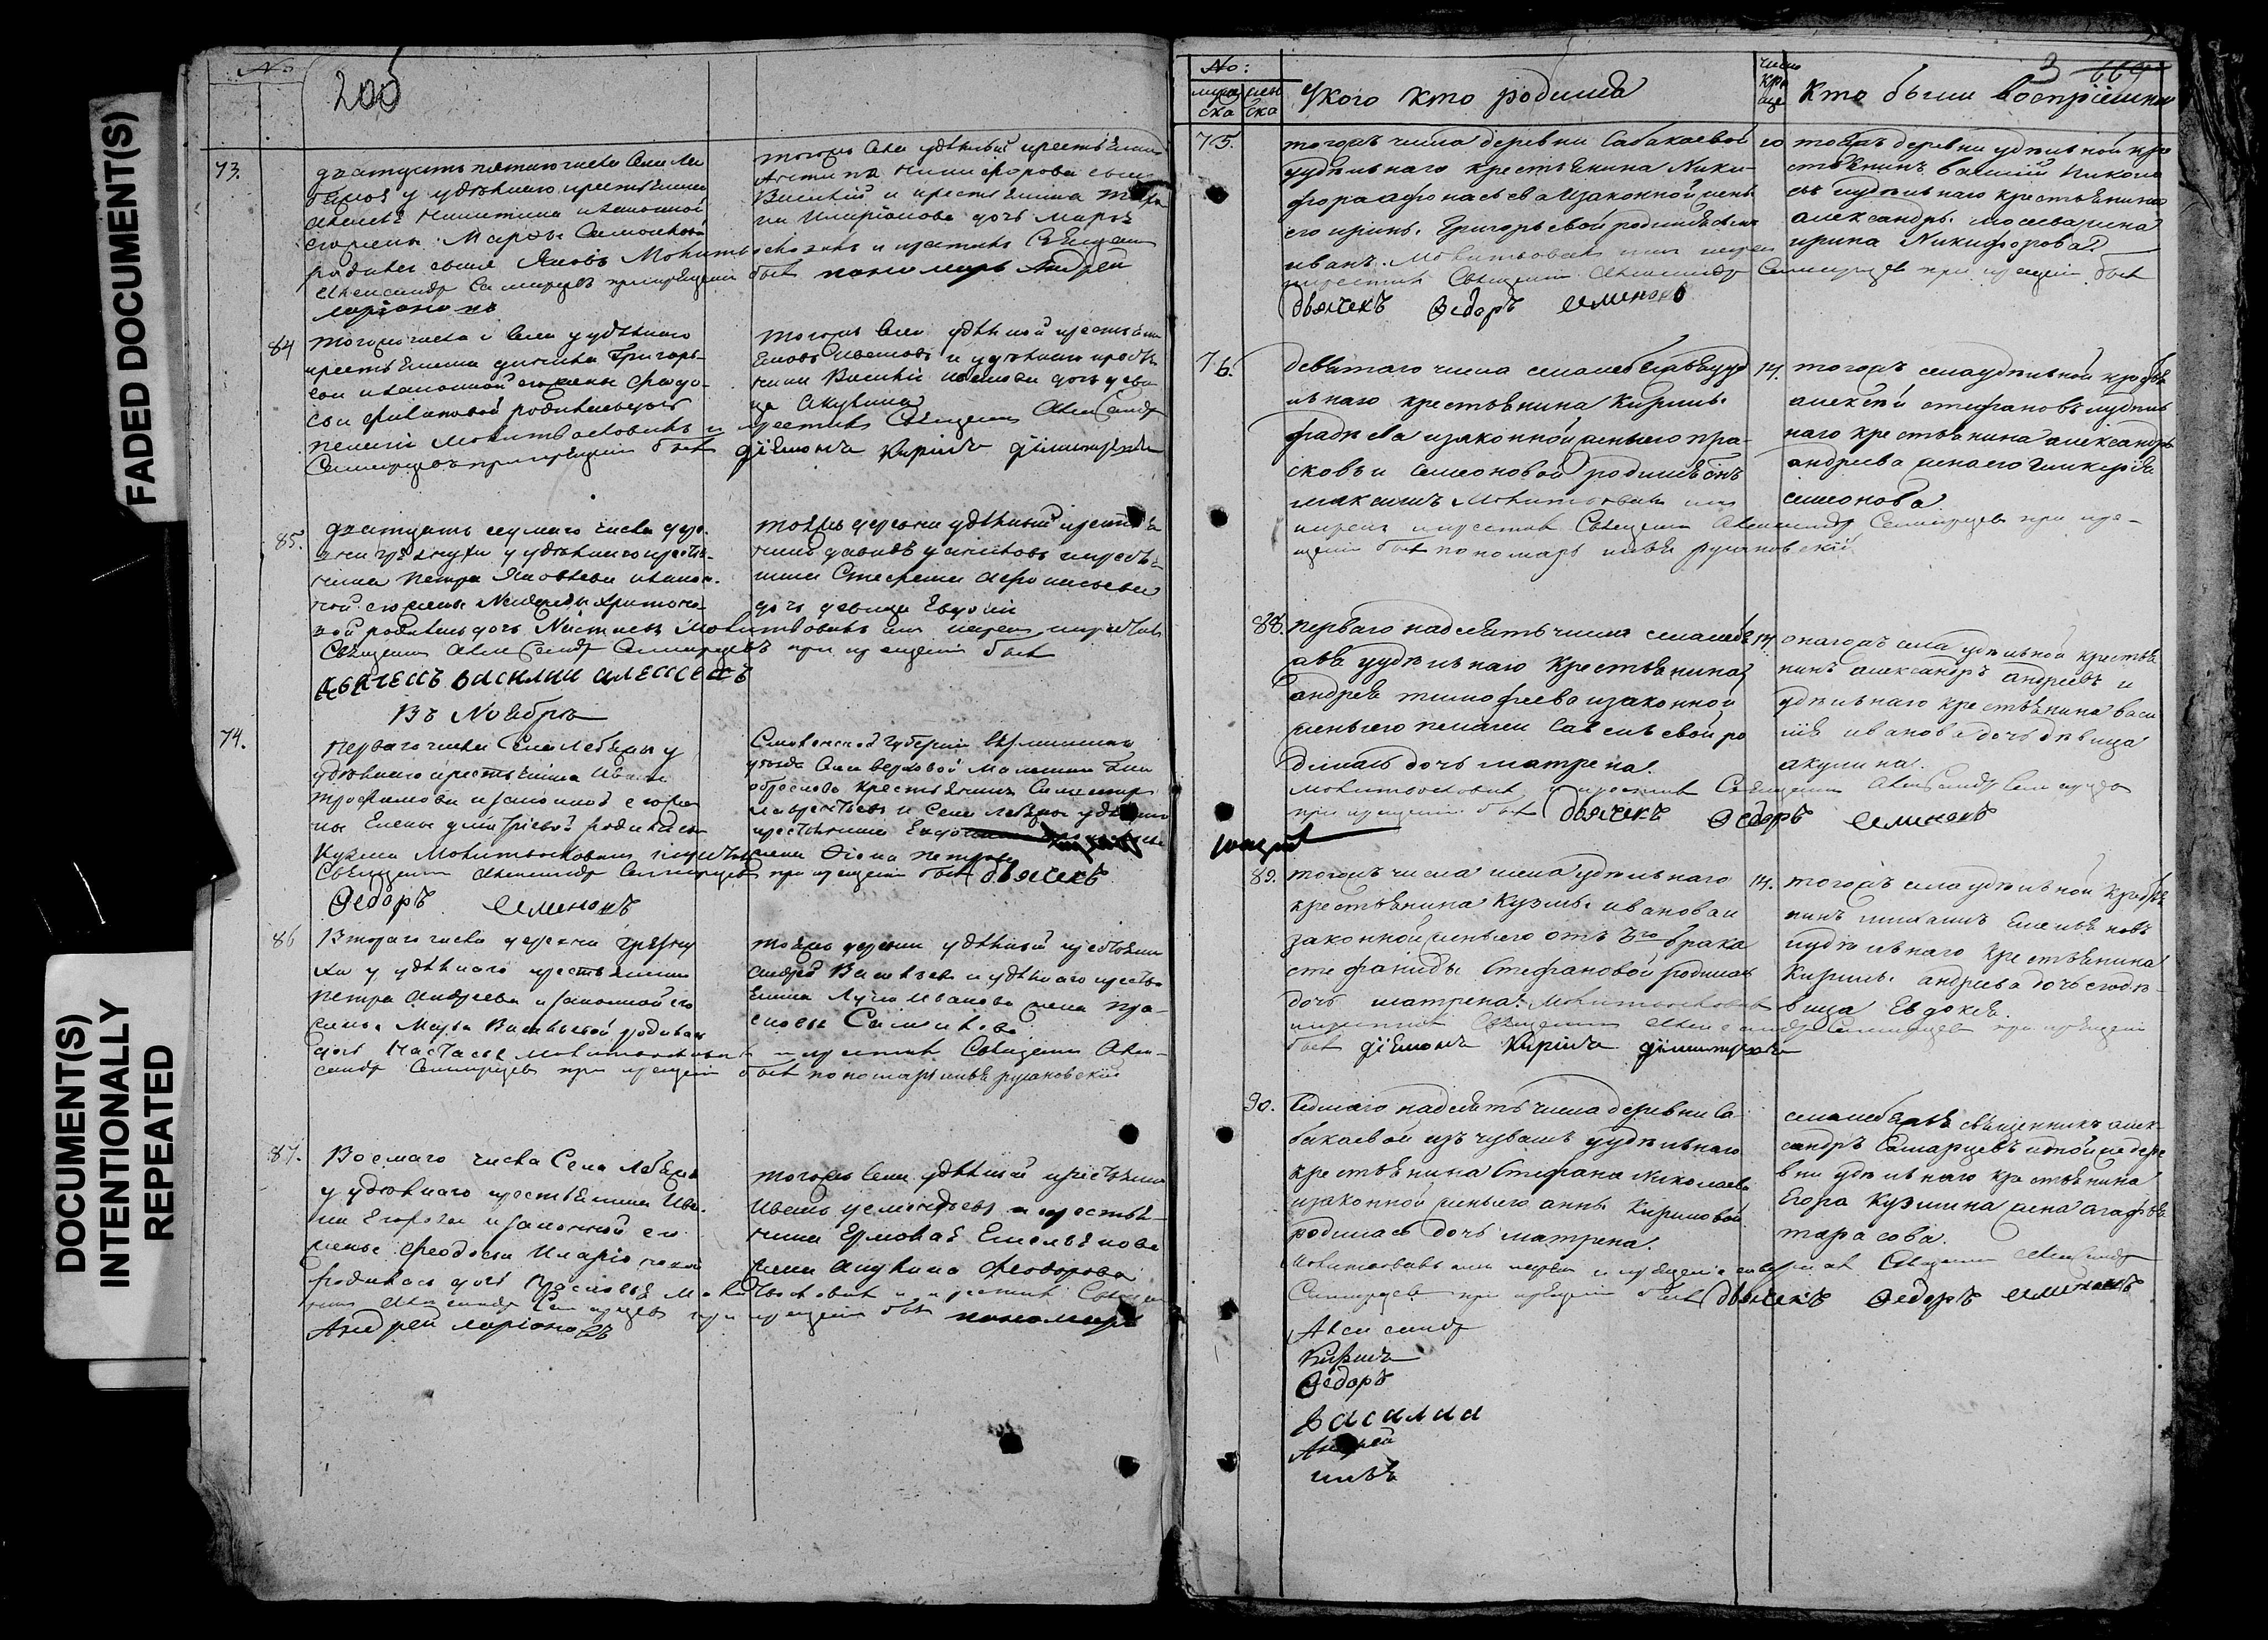 FADED DOCUMENT(S)
DOCUMENT(S)
INTENTIONALLY
REPEATED
No
200
73.
дватцать пятаго числа Села Ле
у удѣлнаго крестьянина
Никитина изаконной
его жены Марѳы Симоновой
родился сынъ Яковъ Молитвословилъ и крестилъ Священникъ
Александр Самарцевъ при крещении былъ пономарь Андрей
ларіоновъ
тогожъ Села удѣлный крестьянинъ
Никифорова сынъ
Василий и крестьянина
Иларіонова дочь Марѳа
84
тогожъ числа и Села у удѣлнаго
крестьянина Григорь
ева изаконной его жены Федо
сьи Филатовой родилась дочь
Пелагія Молитвословилъ и крестилъ Священникъ Александр
Самарцевъ при крещении былъ діяконъ Кирилъ димитріевъ
тогожъ Села удѣлной крестьянинъ
Ивановъ и удѣлнаго крестья
нина Василія Иванова дочь деви
ца Акулина
85.
дватцать седмаго числа дере
вни Грязнухи у удѣлнаго крестья
нина Петра Яковлева изакон
ной его жены
вой родилась дочь Настасья Молитвовалъ имя нарек и крестилъ
Священникъ Александр Самарцевъ при крещении былъ
дьячекъ василий алексеевъ
тояжъ деревни удѣлный крестья
нинъ давыдъ икрестья
нина Стефана Афонасьева
дочь девица Евдокия
Въ Ноябрѣ
74.
перваго числа Села Лебяжья у
удѣлнаго крестьянина Ивана
Трофимова изаконной его же
ны Елены дмитріевой родился сынъ
Кузма Молитвословилъ и крестилъ
Священникъ Александр Самарцевъ при крещении былъ дьячекъ
Ѳедоръ семеновъ
Смоленской губерніи
уѣзда Села
крестьянинъ
и Села Лебяжья удѣлнаго
крестьянина
жена Ѳіона петрова
86
Втораго числа деревни Грязну
хи у удѣлнаго крестьянина
Петра Андреева изаконной его
жены Марьи Васильевой родилась
дочь Настасья Молитвословилъ и крестилъ Священникъ Алек
сандр Самарцевъ при крещении былъ пономарь илья русановскій
тояжъ деревни удѣлный крестьянинъ
Андрей Васильевъ и удѣлнаго кресть
янина Луки Иванова жена Пра
сковья Самойлова
87.
Восмаго числа Села Лебяжья
у удѣлнаго крестьянина Ива
на Егорова изаконной его
жены Феодосьи Иларіоновой
родилась дочь Прасковья Молитвословилъ и крестилъ Священ
никъ Александр Самарцевъ при крещении былъ пономарь
Андрей ларіоновъ
тогожъ Села удѣлный крестьянинъ
Иванъ и крестья
нина Ермолая Емельянова
жена Акулина Феодорова
No:
мужеска женска
У кого кто родился
число креще
Кто были воспріемники
3
664
75.
тогожъ числа деревни Сабакаевой
у удѣльнаго крестьянина Ники
фора афонасьева изаконной жены
его ирины Григорьевой родился сынъ
иванъ. Молитвовалъ имя нарек
и крестилъ Священникъ Александр Самарцев при крещении былъ
дьячекъ Ѳедоръ семеновъ
10
тойжъ деревни удѣльной кре
стьянинъ василій Никола
евъ иудѣльнаго крестьянина
александра Моисеева жена
ирина Никифорова
76.
девятаго числа села лебяжья у уд
ѣльнаго крестьянина Кирилы
фадѣева изаконной жены его пра
сковьи семеновой родился сынъ
максимъ Молитвовалъ имя
нарек и крестилъ Священникъ Александр Самарцев при кре
щении былъ пономарь илья русановскій
14.
тогожъ села удѣльной крестья
алексѣй стефановъ иудѣль
наго крестьянина александра
андреева жена его гликерія
семенова
88.
перваго надесять числа села лебя
жья у удѣльнаго крестьянина
андрея тимофеева изаконной
жены его пелагеи савельевой ро
дилась дочь матрена.
Молитвословилъ и крестилъ Священникъ Александр Самарцев
при крещении былъ дьячекъ Ѳедоръ семеновъ
14.
онагожъ села удѣльной крестья
нинъ александръ андреевъ и
удѣльнаго крестьянина васи
лія иванова дочь дѣвица
акулина.
89.
тогожъ числа исела удѣльнаго
крестьянина Кузмы иванова и
законной жены его отъ 3го брака
стефаниды Стефановой родилась
дочь матрена. Молитвословилъ
и крестилъ Священникъ Александр Самарцев при крещении
былъ діяконъ Кирилъ димитріевъ
14.
тогожъ села удѣльной крестья
нинъ Емельяновъ
иудѣльнаго крестьянина
Кирилы андреева дочь его дѣ
вица Евдокея.
90.
седмаго надесять числа деревни Са
бакаевой изъ чувашъ у удѣльнаго
крестьянина Стефана Николаева
изаконной жены его анны Кириловой
родилась дочь матрена.
Молитвовалъ имя нарек и крещение совершал Священникъ Александр
Самарцев при крещении былъ дьячекъ Ѳедоръ семеновъ
села лебяжья священникъ алек
сандръ Самарцевъ итойже дере
вни удѣльнаго крестьянина
Егора Кузмина жена агафья
тарасова.
Александр
Кирилъ
Ѳедоръ
Василий
Андрей
илья